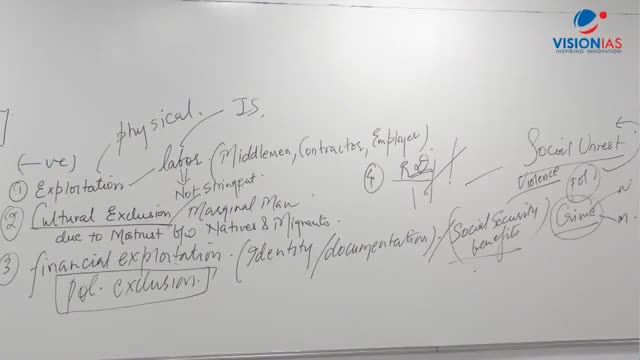 VISIONIAS
INSPIRING INNOVATION
physical.
IS.
(-ve)
① Exploitation
labor (Middlemen, Contractor, Employer)
Not Stringent.
② Cultural Exclusion / Marginal Man
due to Mistrust b/w Natives & Migrants.
③ financial exploitation. (Identity/documentation). (Social Security benefits)
pol. exclusion.
④
Social Unrest
Violence
Pol.
Crime